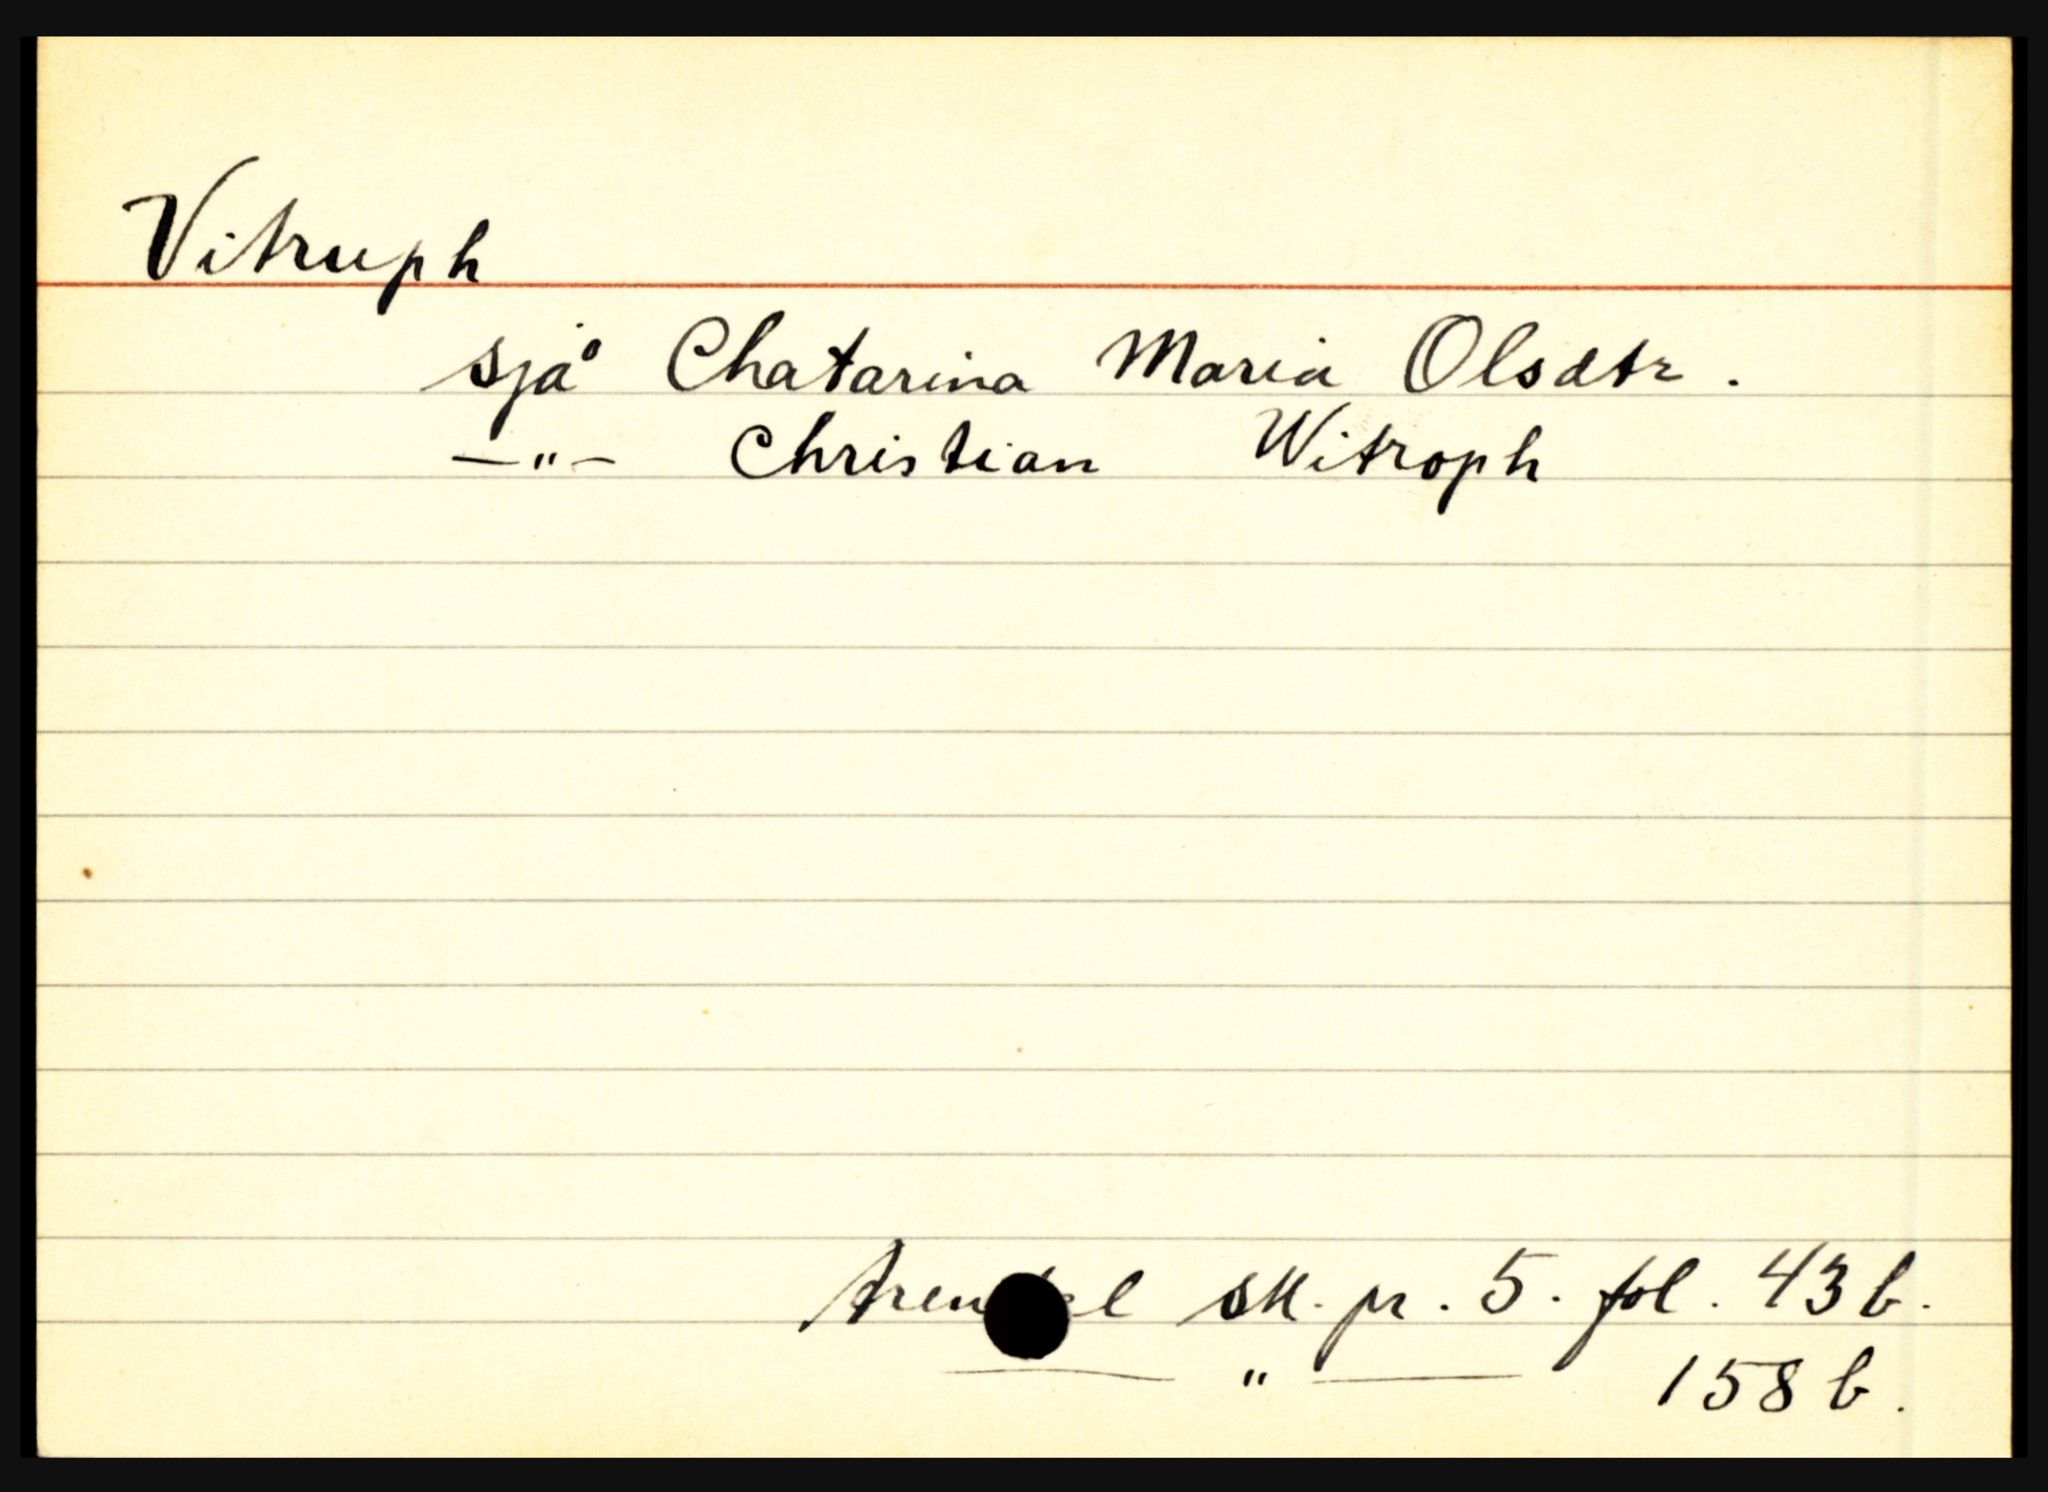 Vitruph
sjå Chatarina Maria Olsdtr.
—"— Christian Witroph
sk. pr. 5. fol. 43b.
—"— 158b.